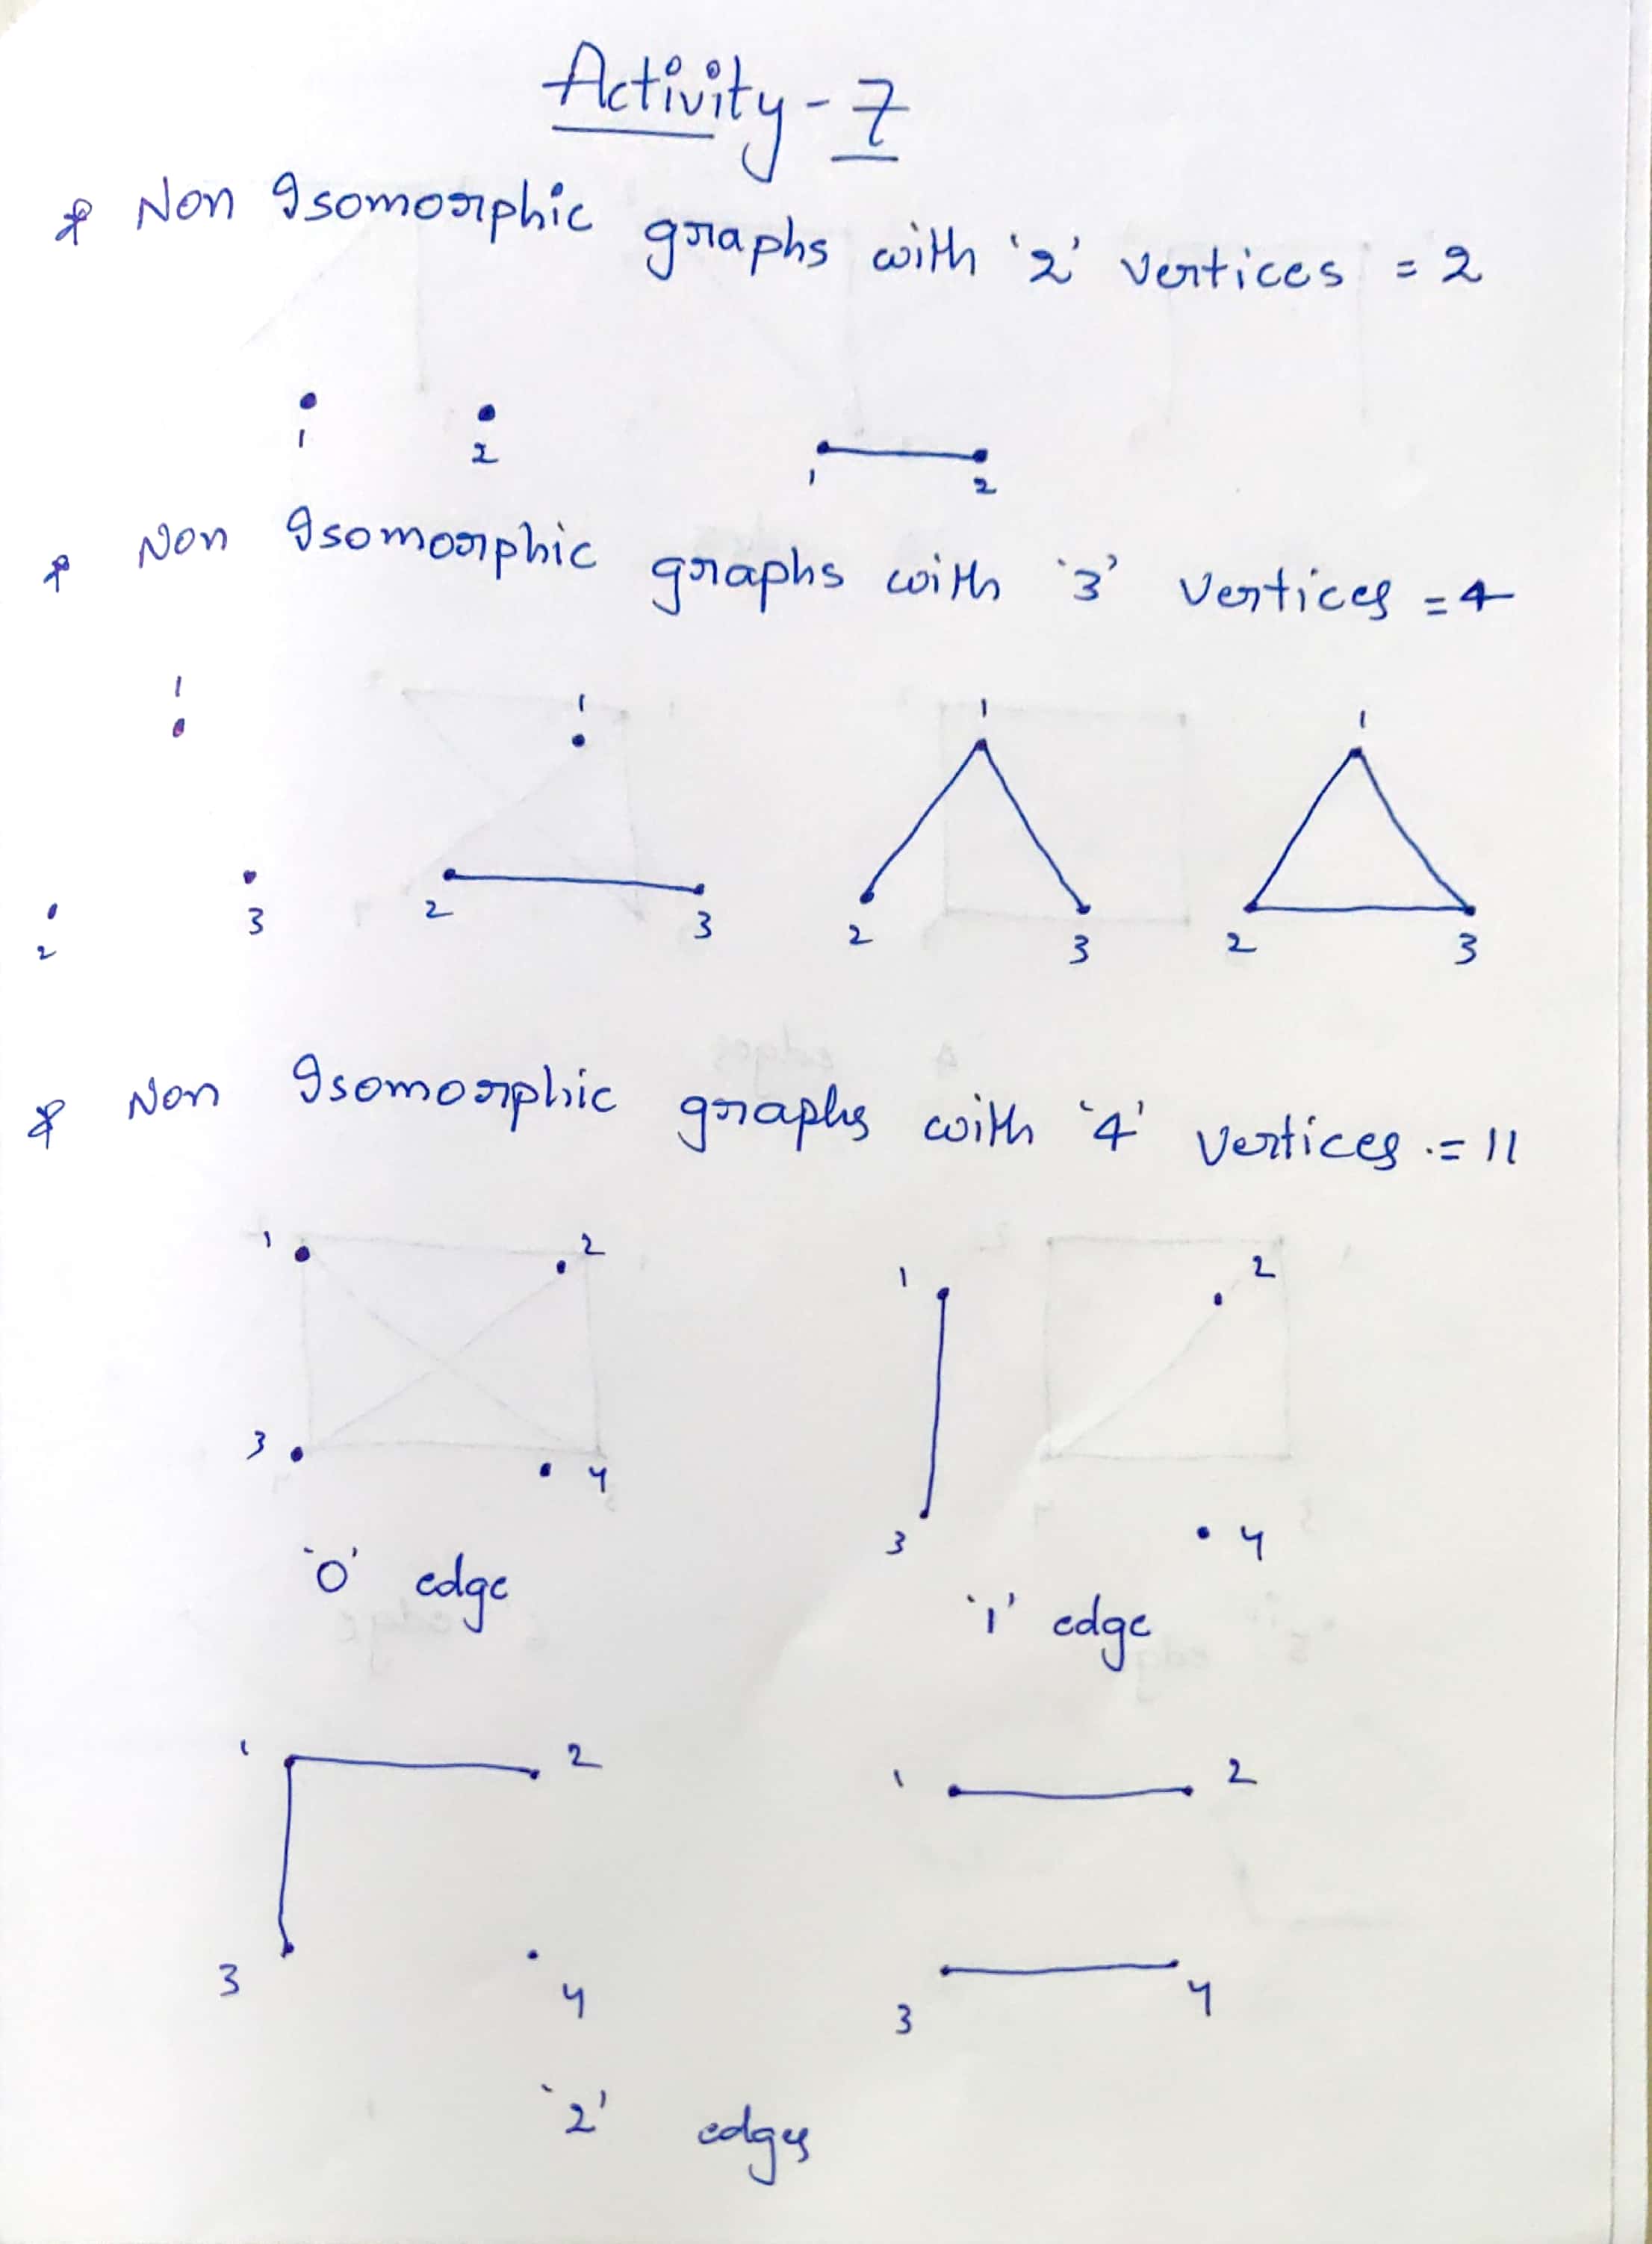 Activity - 7
* Non Isomorphic graphs with '2' vertices = 2
1 2 1 2
* Non Isomorphic graphs with '3' vertices = 4
1 1 1 1
2 3 2 3 2 3 2 3
* Non Isomorphic graphs with '4' vertices .= 11
1 2 1 2
3 4 3 4
'0' edge '1' edge
1 2 1 2
3 4 3 4
'2' edges